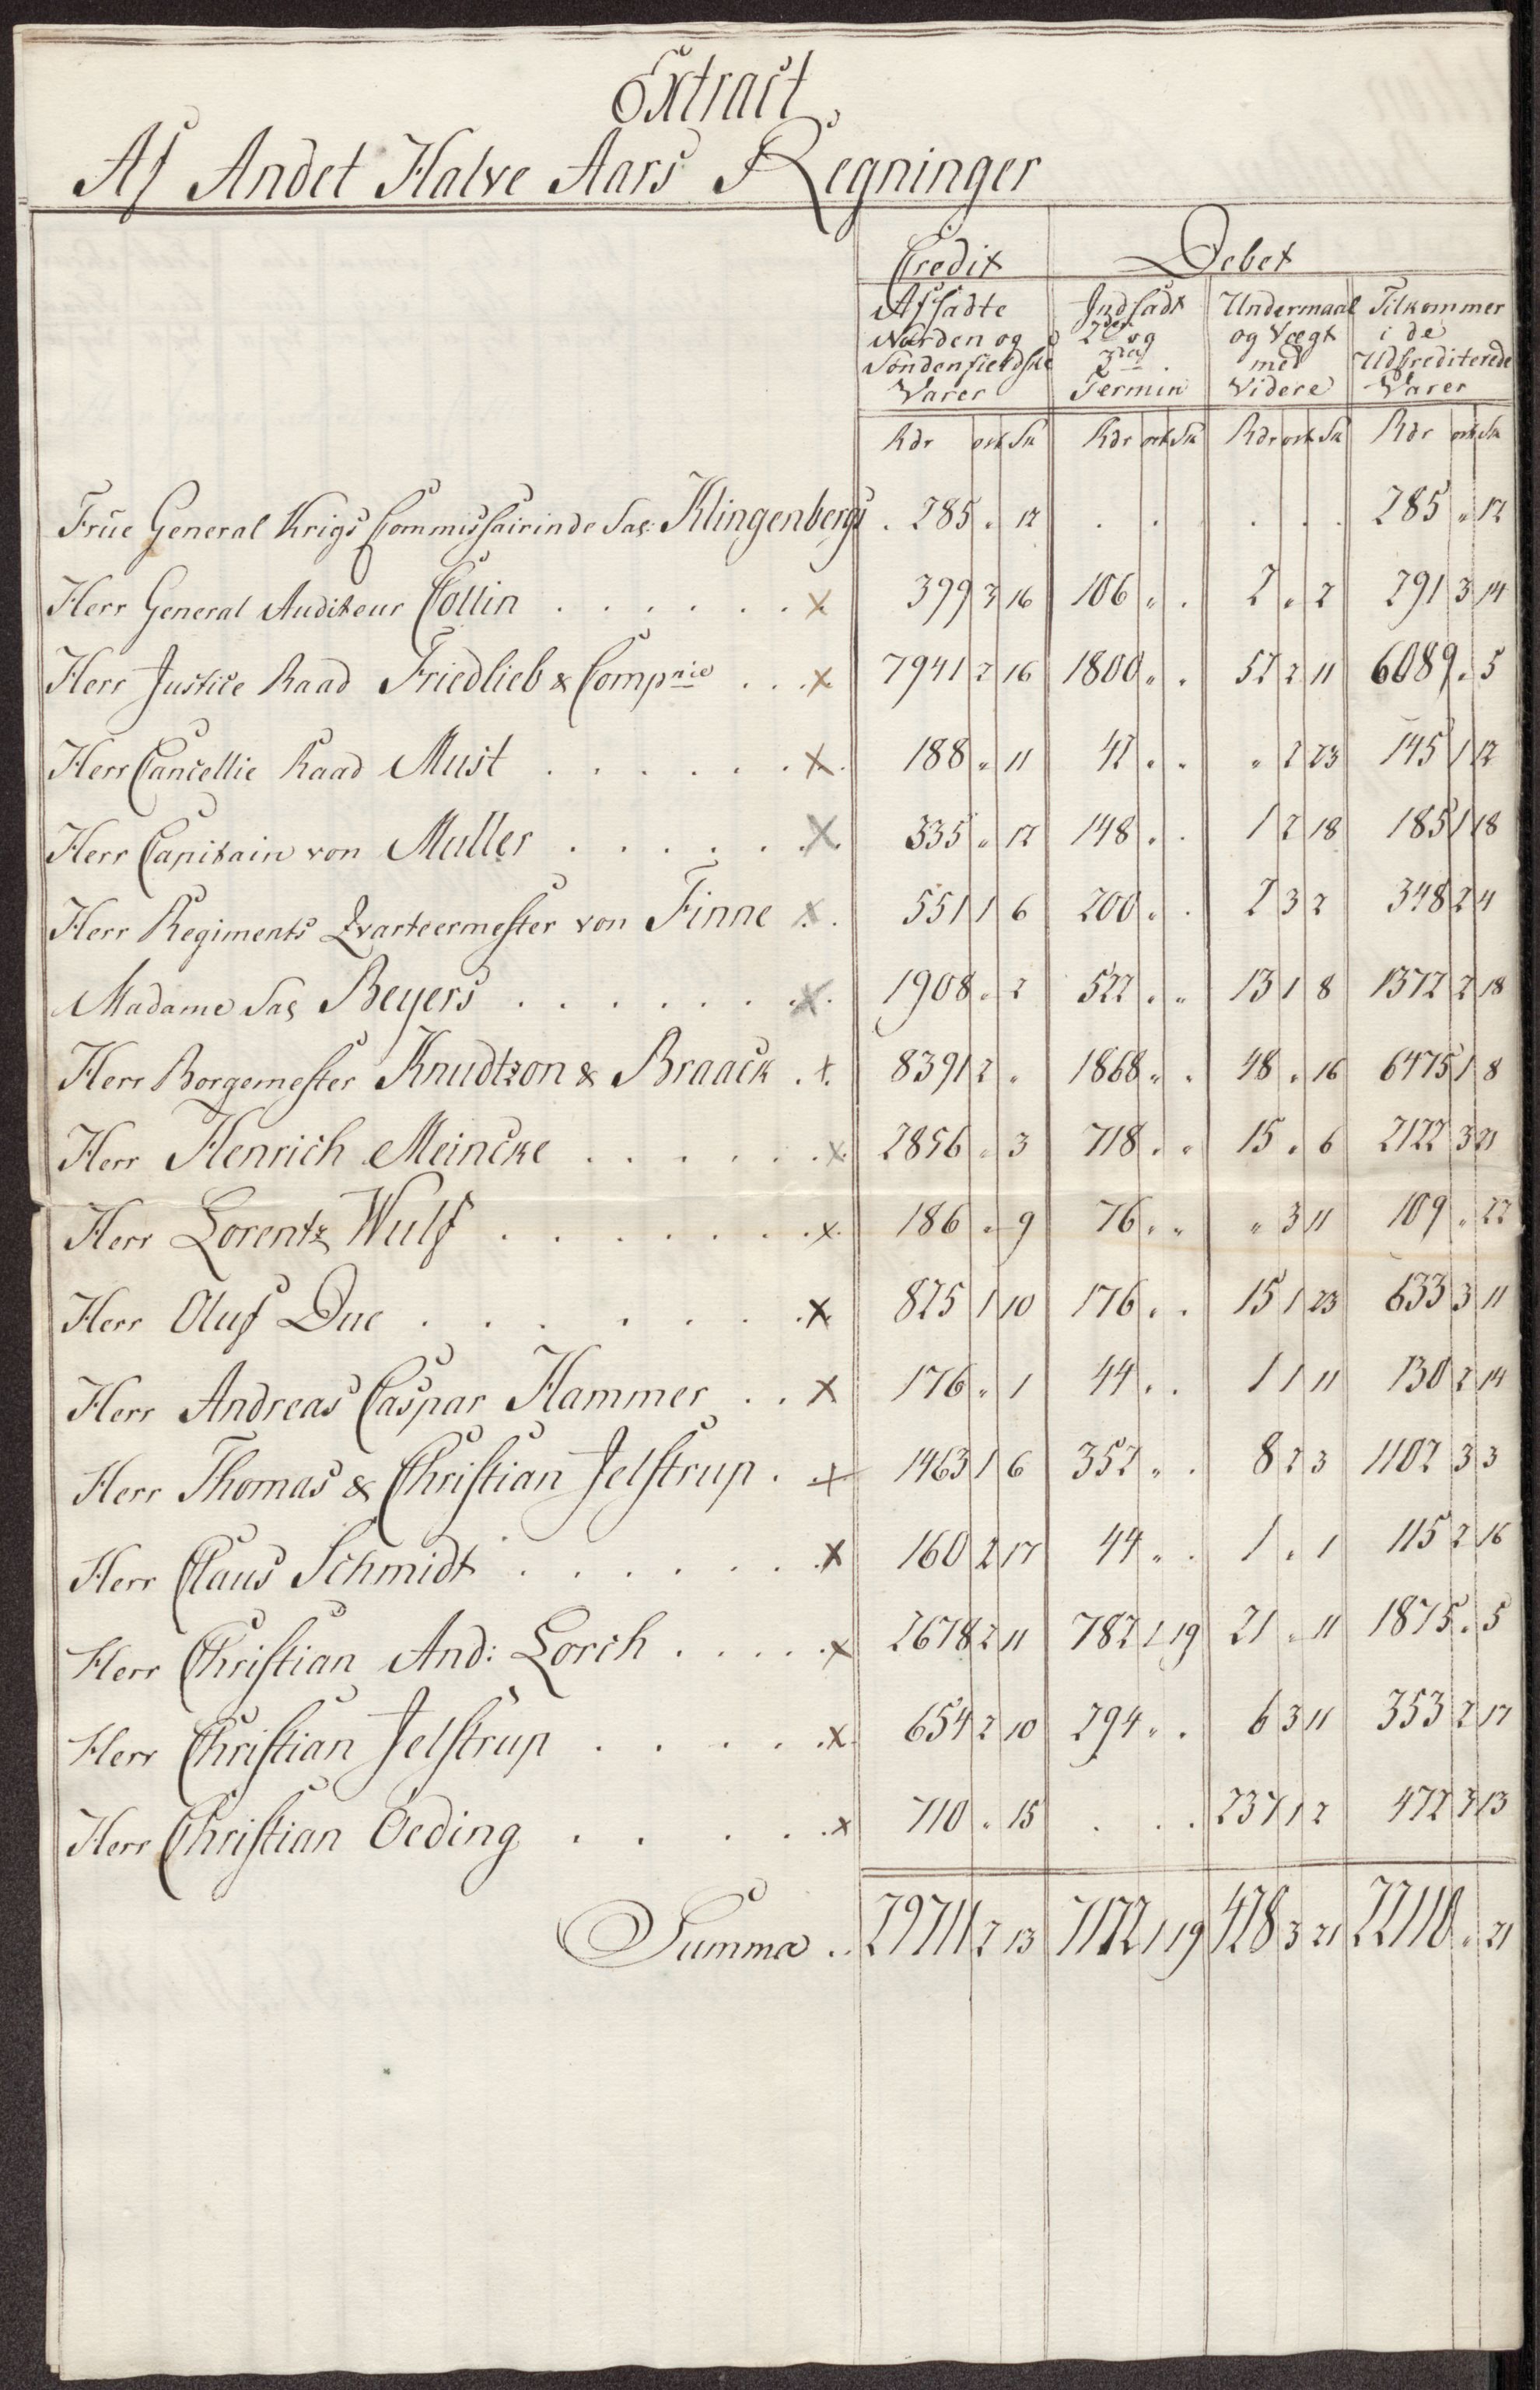 Extract
Af Andet Halve Aars Regninger
Credit Debet
Afsadte Norden og Søndenfieldske Varer Indsadt 2den og 3die Termin Undermaal og Vægt med Videre Tilkommer i de Udkrediterede Varer
Rdr ort Sk Rdr ort Sk Rdr ort Sk Rdr ort Sk
Frue General Krigs Commissairinde Sal: Klingenbergs . 285 " 12 . . . . . 285 " 12
Herr General Auditeur Collin . . . . . . x 399 3 16 106 " . 2 " 2 291 3 14
Herr Justice Raad Friedlieb & Compnie . . . x 7941 2 16 1800 " " 52 2 11 6089 " 5
Herr Cancellie Raad Must . . . . . . x 188 " 11 42 " " " 2 23 145 1 12
Herr Capitain von Muller . . . . . . x 335 " 12 148 " . 1 2 18 185 1 18
Herr Regiments Qvarteermester von Finne x . 551 1 6 200 " . 2 3 2 348 2 4
Madame Sal Beyers . . . . . . . x 1908 " 2 522 " " 13 1 8 1372 2 18
Herr Borgemester Knudtzon & Braack . x 8391 2 " 1868 " " 48 " 16 6475 1 8
Herr Henrich Meincke . . . . . . x 2856 " 3 718 " " 15 " 6 2122 3 21
Herr Lorentz Wulf . . . . . . . x 186 " 9 76 " " " 3 11 109 " 22
Herr Oluf Due . . . . . . . x 825 1 10 176 " . 15 1 23 633 3 11
Herr Andreas Caspar Hammer . . x 176 " 1 44 " . 1 1 11 130 2 14
Herr Thomas & Christian Jelstrup . x 1463 1 6 352 " . 8 2 3 1102 3 3
Herr Claus Schmidt . . . . . . x 160 2 17 44 " . 1 " 1 115 2 16
Herr Christian And: Lorch . . . . . x 2678 2 11 782 1 19 21 " 11 1875 " 5
Herr Christian Jelstrup . . . . . x 654 2 10 294 " . 6 3 11 353 2 17
Herr Christian Oeding . . . . . x 710 " 15 . . . 237 1 2 472 3 13
Summa . . 29711 2 13 7172 1 19 428 3 21 22110 " 21